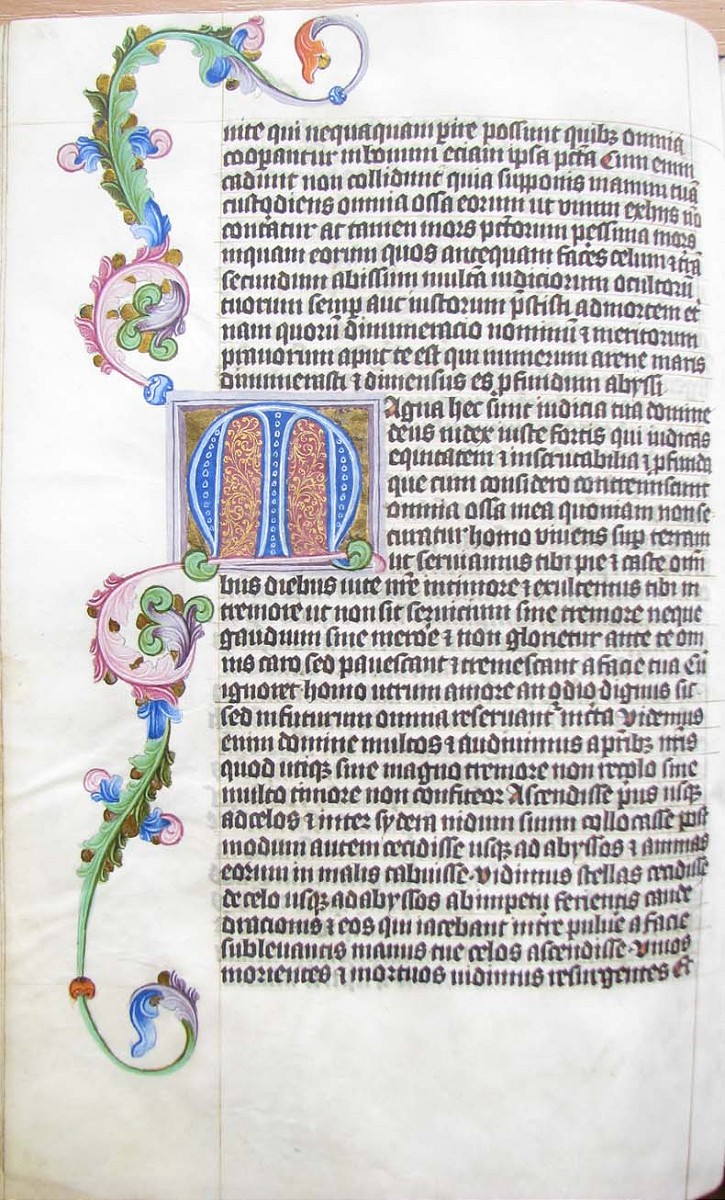 uite qui nequaquam pire possunt quibz omnia
cooperantur inbonum eciam ipsa pctā Cum enim
cadunt non collidunt quia supponis manum tuā
custodiens omnia ossa eorum ut unum exhiis nō
conteratur at tamen mors pctorum pessima mors
inquam eorum quos antequam faceres celum ⁊ trā
secundum abissum multā iudiciorum ocultorū
tuorum semp aut iustorum pstisti admortem et
nam quorū dinumeracio nominū ⁊ meritorum
prauorum aput te est qui numerum arene maris
dinumerasti ⁊ dimensus es pfundum abyssi
Magna hec sunt iudicia tua domine
deus iudex iuste fortis qui iudicas
equitatem ⁊ inscrutabilia ⁊ pfunda
que cum considero contremiscunt
omnia ossa mea quoniam non se
curatur homo viuens sup terram
ut seruiamus tibi pie ⁊ caste om̄
bus diebus uite nre intimore ⁊ exultemus tibi in
tremore ut non sit seruicium sine tremore neque
gaudium sine merore ⁊ non glorietur ante te om
nis caro sed pauescant ⁊ tremescant a facie tua Cū
ignoret homo utrum amore an odio dignus sit
sed infuturum omnia reseruant incta Vidimus
enim domine multos ⁊ audiuimus apribz nris
quod utiqz sine magno tremore non recolo sine
multo timore non confiteor Ascendisse pus usqz
adcelos ⁊ inter sydera nidum suum collocasse post
modum autem cecidisse usqz ad abyssos ⁊ animas
eorum in malis tabuisse · vidimus stellas cecidisse
de celo usqz adabyssos abimpetu ferientis caude
draconis ⁊ eos qui iacebant intre puluere a facie
subleuantis manus tue celos ascendisse · viuos
morientes ⁊ mortuos uidimus resurgentes Et